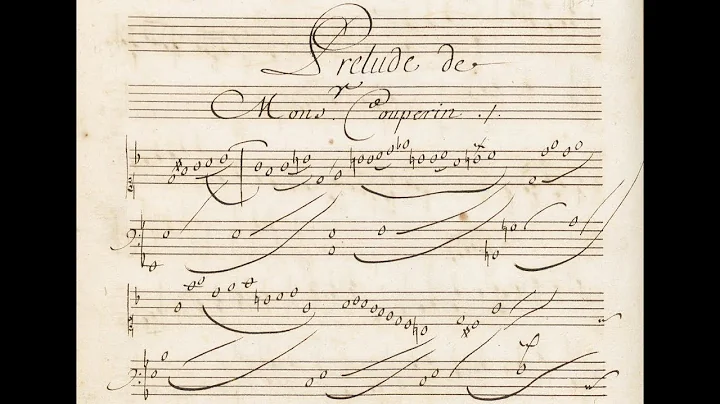 Prelude de
Mons.r Couperin ./.